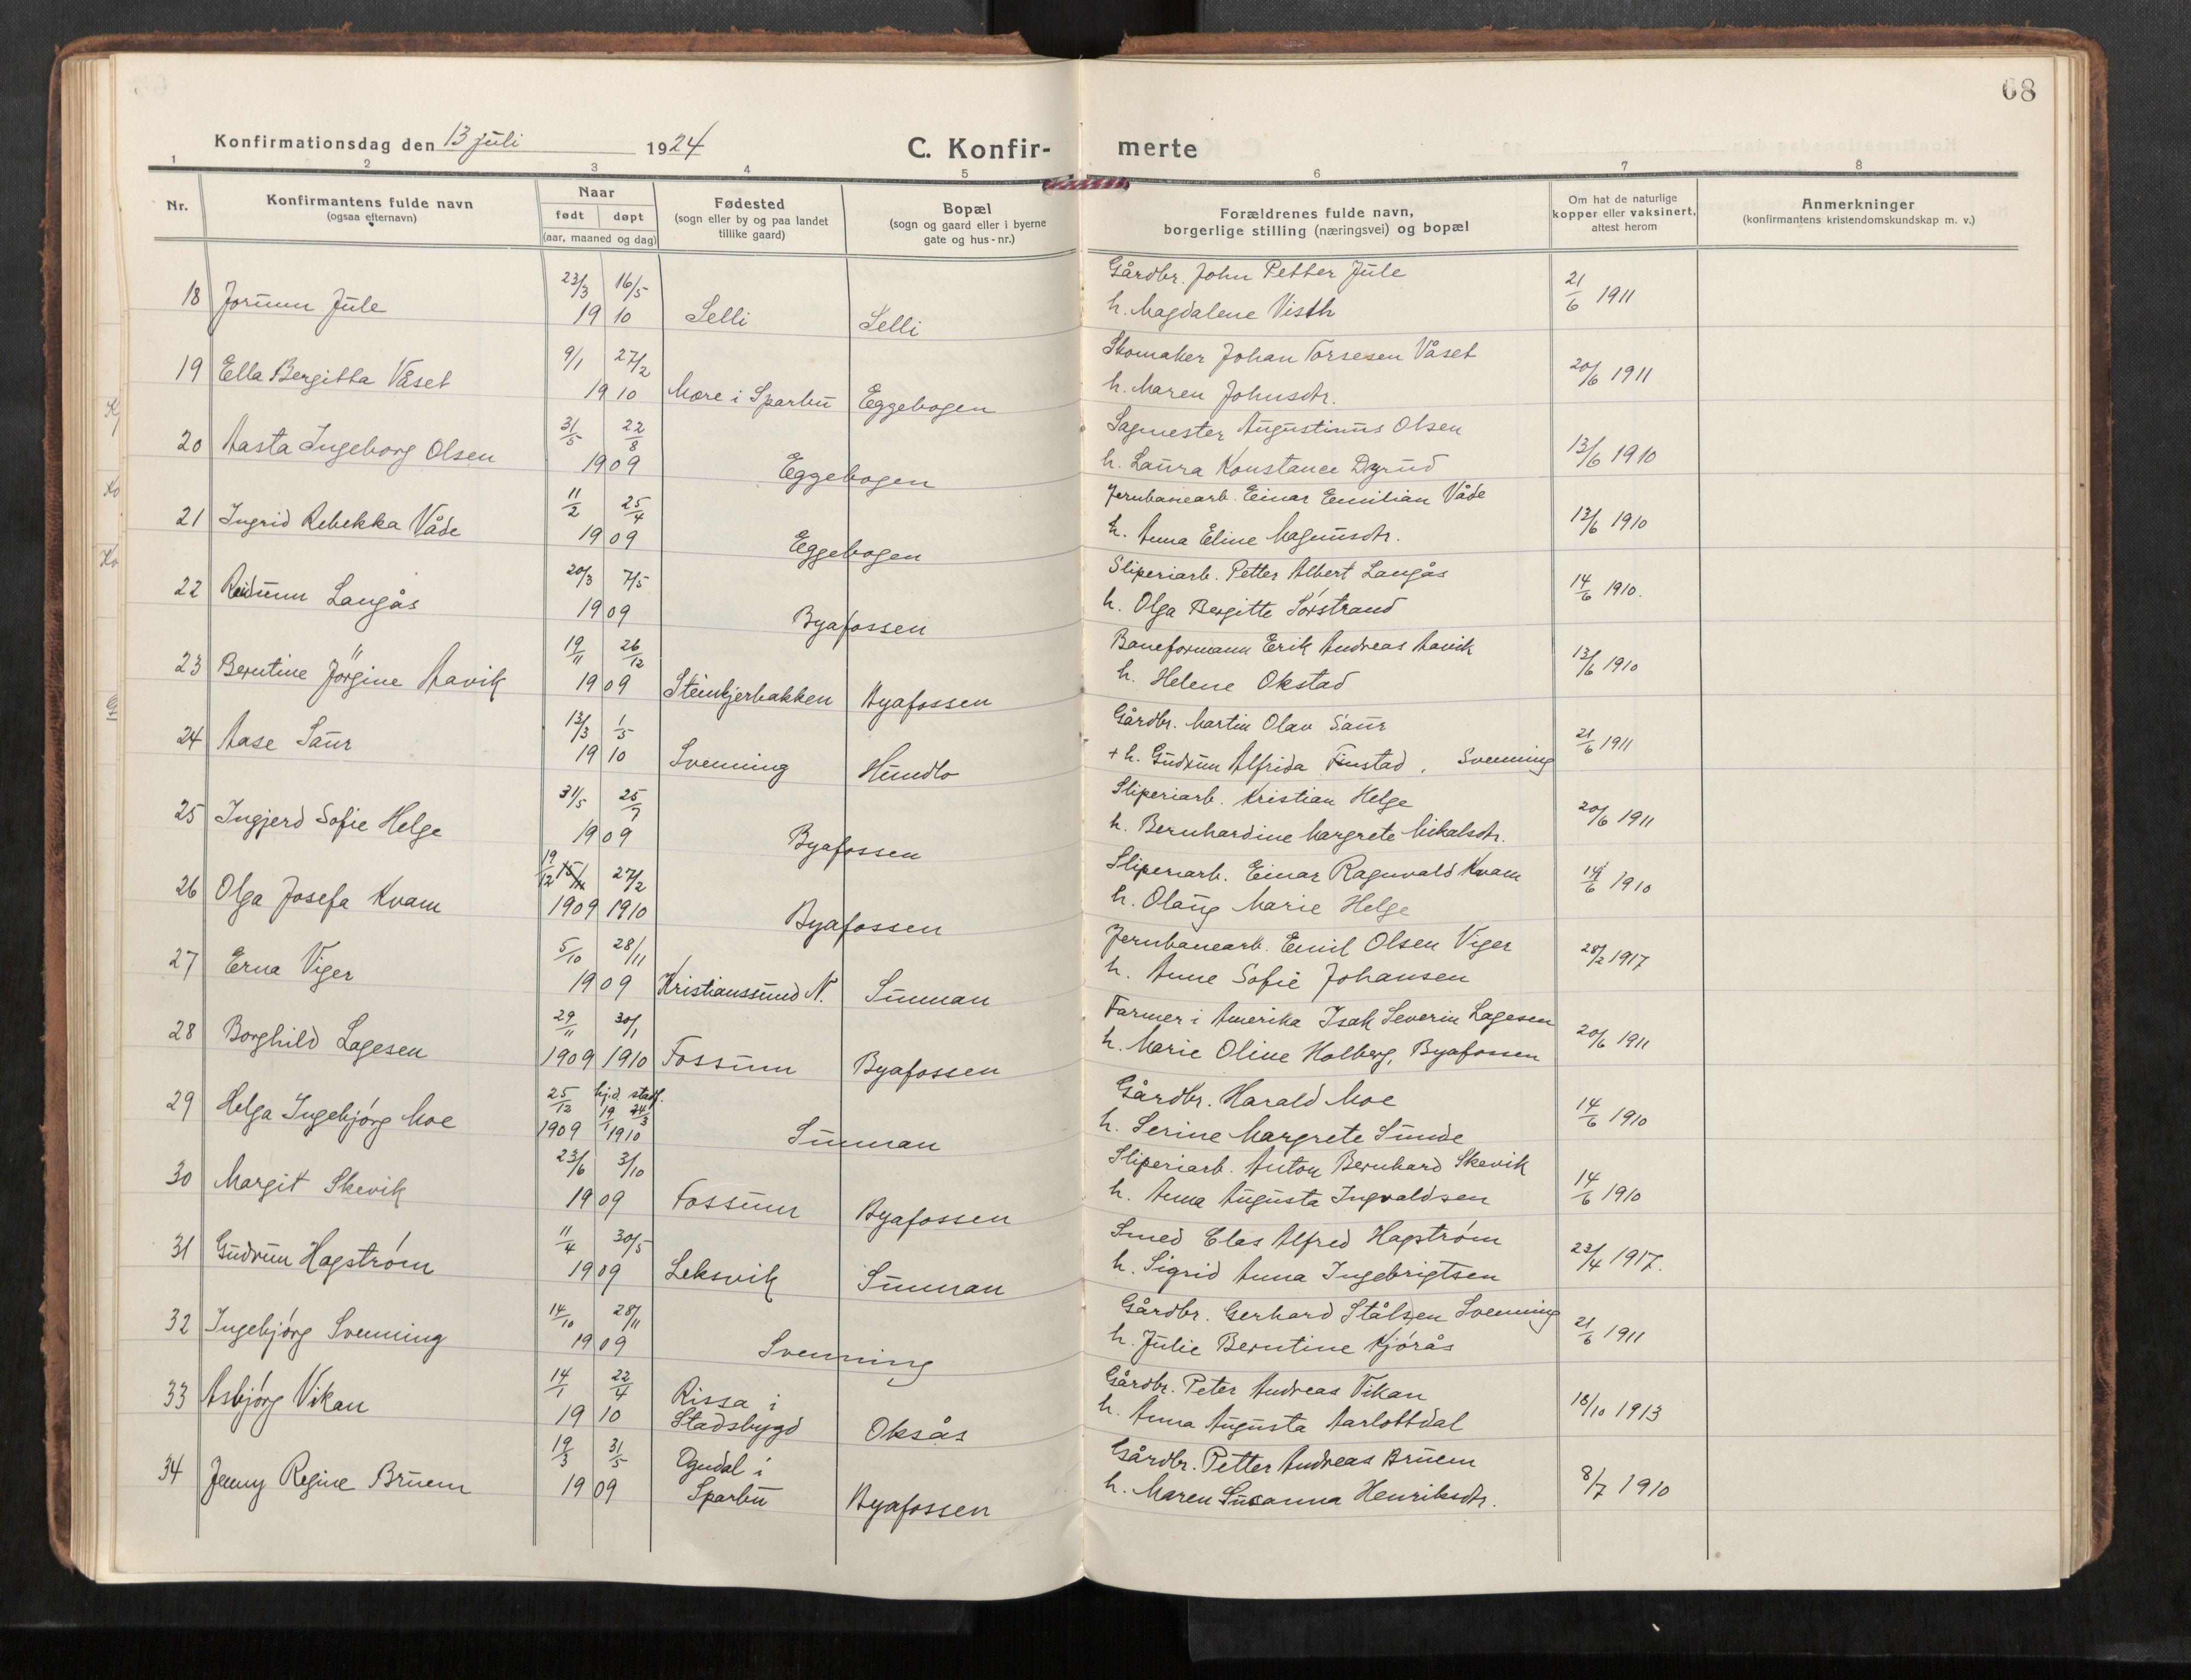 68
Konfirmationsdag den 13 juli 1924
C. Konfir- merte
1 2 3 4 5 6 7 8
Nr.
Konfirmantens fulde navn
(ogsaa efternavn)
Naar
født døpt
(aar, maaned og dag)
Fødested
(sogn eller by og paa landet
tillike gaard)
Bopæl
(sogn og gaard eller i byerne
gate og hus-nr.)
Forældrenes fulde navn,
borgerlige stilling (næringsvei) og bopæl
Om hat de naturlige
kopper eller vaksinert,
attest herom
Anmerkninger
(konfirmantens kristendomskundskap m. v.)
23/3 16/5 Gårdbr. John Petter Jule
18 Jorunn Jule 19 10 Selli Selli h. Magdalene Visth 21/6 1911
9/1 27/2 Skomaker Johan Torsesen Våset
19 Ella Bergitta Våset 19 10 Mære i Sparbu Eggebogen h. Maren Johnsdtr. 20/6 1911
31/5 22/8 Sagmester Augustinus Olsen
20 Aasta Ingeborg Olsen 19 09 Eggebogen h. Laura Konstance Dyrud 13/6 1910
11/2 25/4 Jernbanearb. Einar Emilian Våde
21 Ingrid Rebekka Våde 19 09 Eggebogen h. Anna Eline Magnusdtr. 13/6 1910
20/3 7/5 Sliperiarb. Petter Albert Langås
22 Reidunn Langås 19 09 Byafossen h. Olga Bergitte Sørstrand 14/6 1910.
19/11 26/12 Baneformann Erik Andreas Aavik
23 Berntine Jørgine Aavik 19 09 Steinkjerbakken Byafossen h. Helene Okstad 13/6 1910
13/3 1/5 Gårdbr. Martin Olav Saur
24 Aase Saur 19 10 Svenning Hundlo + h. Gudrun Alfrida Finstad, Svenning 21/6 1911
31/5 25/7 Sliperiarb. Kristian Helge
25 Ingjerd Sofie Helge 19 09 Byafossen h. Bernhardine Margrete Mikalsdtr. 20/6 1911
19/12 27/2 Sliperiarb. Einar Ragnvald Kvam
26 Olga Josefa Kvam 1909 1910 Byafossen h. Olaug Marie Helge 14/6 1910
5/10 28/11 Jernbanearb. Emil Olsen Viger
27 Erna Viger 19 09 Kristianssund N. Sunnan h. Anne Sofie Johansen 28/2 1917
29/11 30/1 Farmer i Amerika Isak Severin Lagesen
28 Borghild Lagesen 1909 1910 Fossum Byafossen h. Marie Oline Holberg, Byafossen 20/6 1911
25/12 hj.d. stadf. 19/1 24/3 Gårdbr. Harald Moe
29 Helga Ingebjørg Moe 1909 1910 Sunnan h. Serine Margrete Sunde 14/6 1910
23/6 3/10 Sliperiarb. Anton Bernhard Skevik
30 Margit Skevik 19 09 Fossum Byafossen h. Anna Augusta Ingvaldsen 14/6 1910
11/4 30/5 Smed Elas Alfred Hagstrøm
31 Gudrun Hagstrøm 19 09 Leksvik Sunnan h. Sigrid Anna Ingebrigtsen 23/4 1917.
14/10 28/11 Gårdbr. Gerhard Stålsen Svenning
32 Ingebjørg Svenning 19 09 Svenning h. Julie Berntine Kjørås 21/6 1911
14/1 22/4 Rissa i Gårdbr. Peter Andreas Vikan
33 Asbjørg Vikan 19 10 Stadsbygd Oksås h. Anna Augusta Aarlottdal 18/10 1913
19/3 31/5 Ogndal i Gårdbr. Petter Andreas Bruem
34 Jenny Regine Bruem 19 09 Sparbu Byafossen h. Maren Susanna Henriksdtr. 8/7 1910